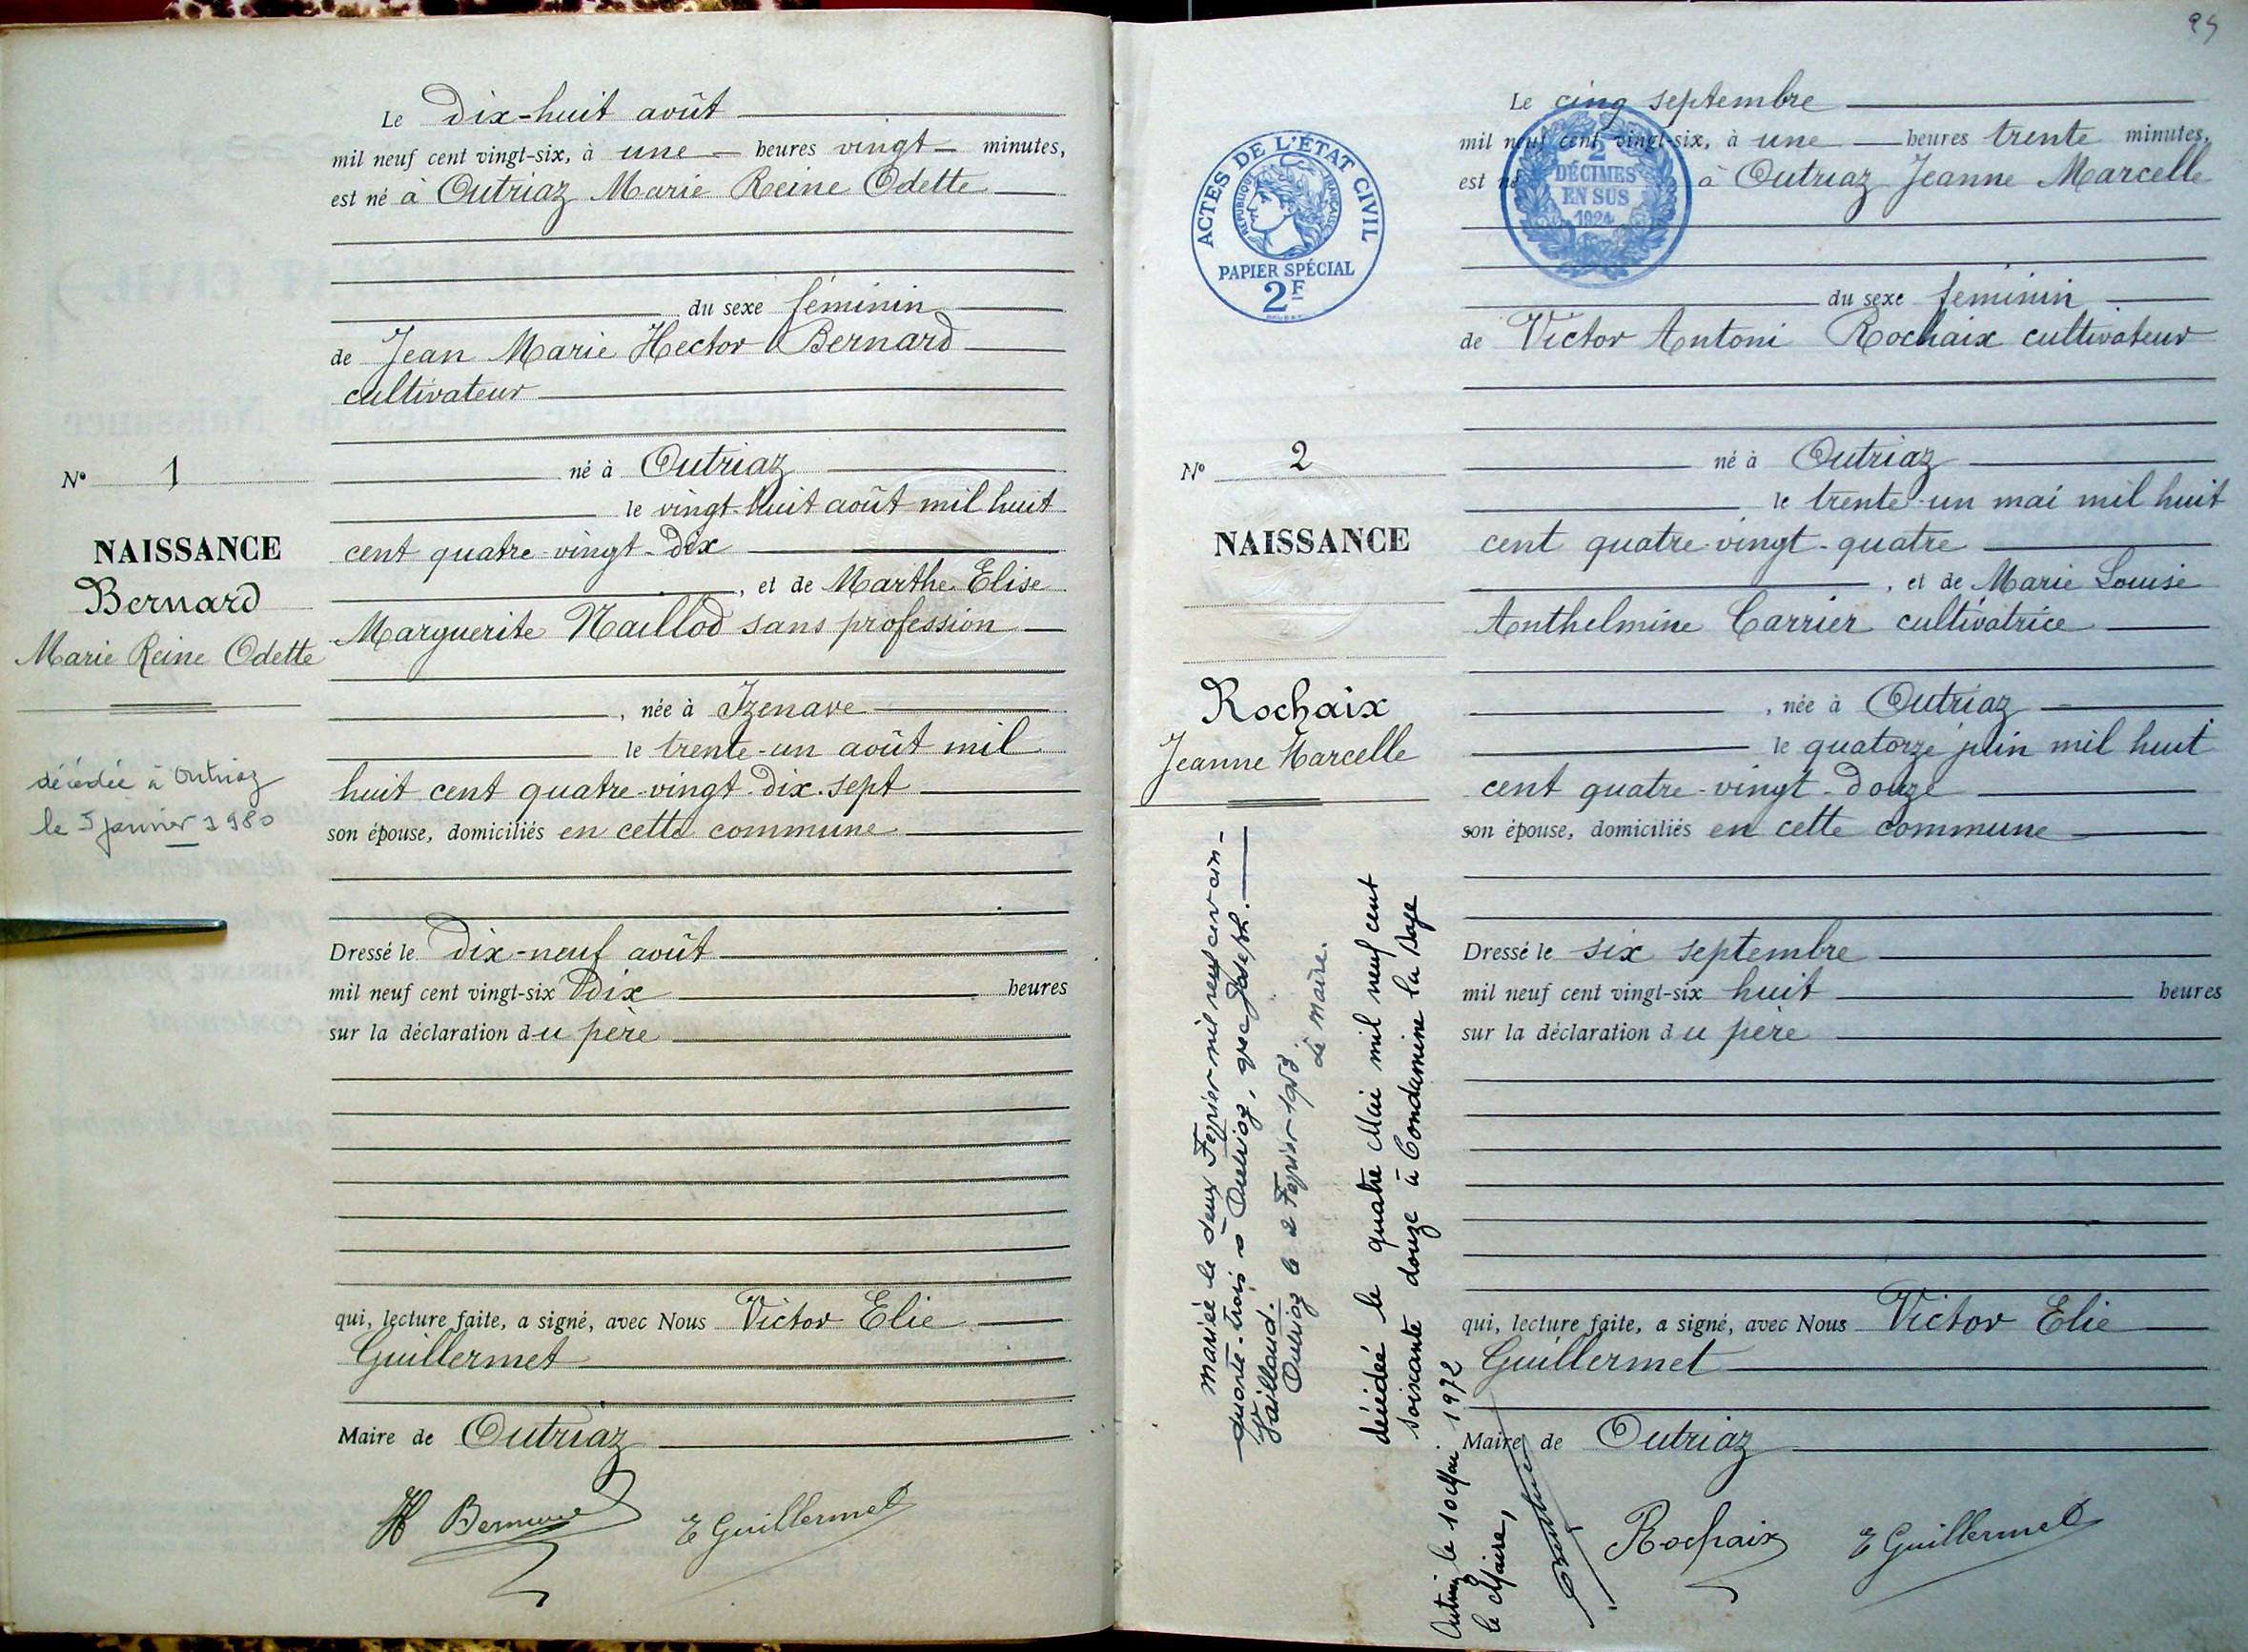 Le Dix-huit août
mil neuf cent vingt-six, à une heures vingt minutes,
est né à Outriaz Marie Reine Odette
du sexe féminin
de Jean Marie Hector Bernard
cultivateur
né à Outriaz
le vingt-huit août mil huit
cent quatre-vingt-dix
, et de Marthe Elise
Marguerite Naillod sans profession
, née à Izenave
le trente-un août mil
huit cent quatre-vingt-dix-sept
son épouse, domiciliés en cette commune
Dressé le dix-neuf août
mil neuf cent vingt-six dix heures
sur la déclaration du père
qui, lecture faite, a signé, avec Nous Victor Elie
Guillermet
Maire de Outriaz
H Bernard E Guillermet
N° 1
NAISSANCE
Bernard
Marie Reine Odette
décédée à Outriaz
le 5 janvier 1980
ACTES DE L'ÉTAT CIVIL
RÉPUBLIQUE FRANÇAISE
PAPIER SPÉCIAL
2F
N° 2
NAISSANCE
Rochaix
Jeanne Marcelle
mariée le deux Février mil neuf cent cin-
quante-trois à Outriaz, avec Joseph
Gaillaud.
Outriaz le 2 Février 1953
Le Maire.
décédée le quatre Mai mil neuf cent
soixante douze à Condamine la Doye
Outriaz le 10 Mai 1972
le Maire,
Le cinq septembre
mil neuf cent vingt-six, à une heures trente minutes,
est né à Outriaz Jeanne Marcelle
2
DÉCIMES
EN SUS
1924
du sexe féminin
de Victor Antoni Rochaix cultivateur
né à Outriaz
le trente-un mai mil huit
cent quatre-vingt-quatre
, et de Marie Louise
Anthelmine Carrier cultivatrice
, née à Outriaz
le quatorze juin mil huit
cent quatre-vingt-douze
son épouse, domiciliés en cette commune
Dressé le six septembre
mil neuf cent vingt-six huit heures
sur la déclaration du père
qui, lecture faite, a signé, avec Nous Victor Elie
Guillermet
Maire de Outriaz
Rochaix E Guillermet